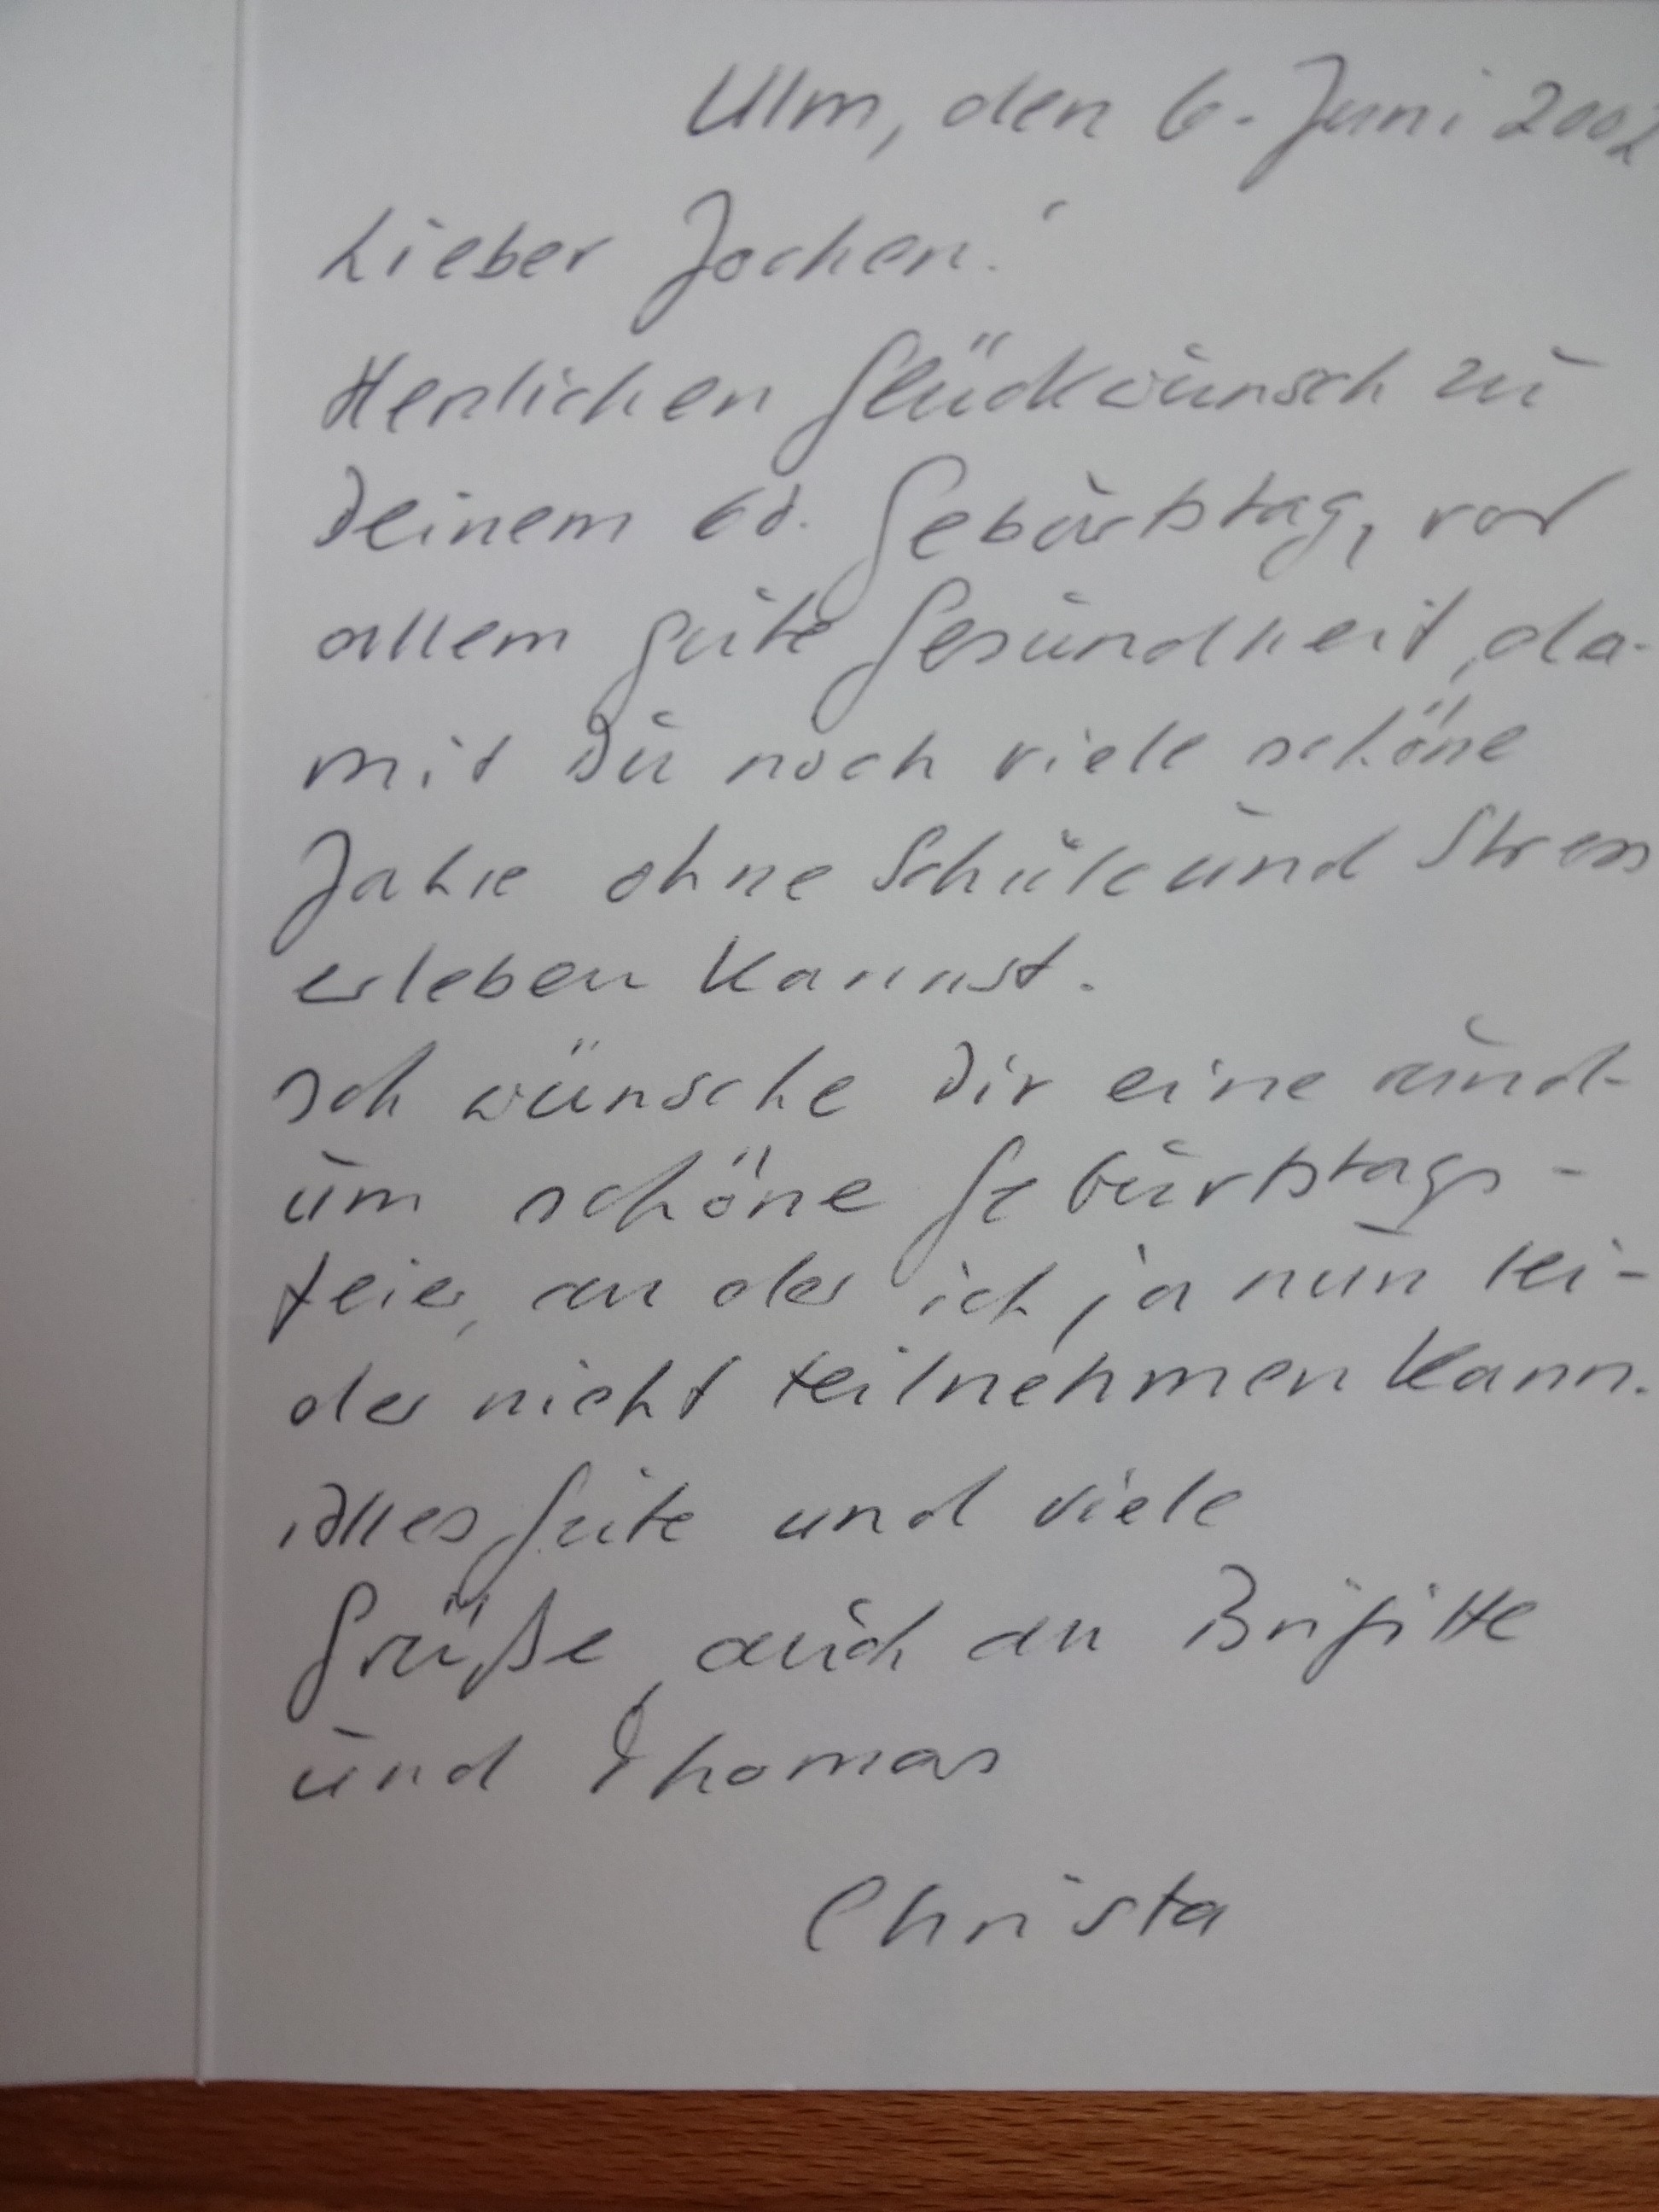 Ulm, den 6. Juni 2002
Lieber Jochen!
Herzlichen Glückwunsch zu
Deinem 60. Geburtstag, vor
allem gute Gesundheit, da-
mit Du noch viele schöne
Jahre ohne Schule und Stress
erleben kannst.
Ich wünsche Dir eine rund-
um schöne Geburtstags-
feier, an der ich ja nun lei-
der nicht teilnehmen kann.
Alles Gute und viele
Grüße, auch an Brigitte
und Thomas
Christa